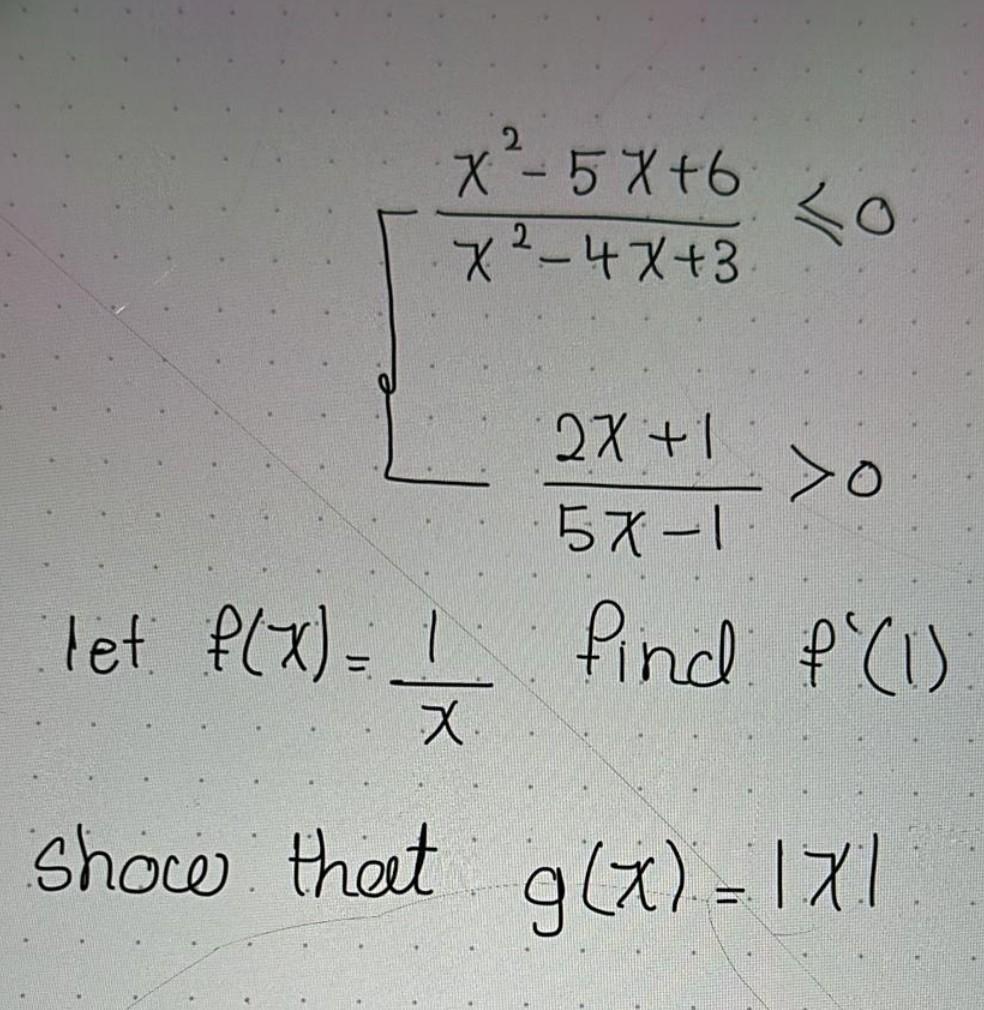 x²-5x+6/x²-4x+3 ⩽0
2x+1/5x-1 >0
let f(x)=1/x find f'(1)
show that g(x)=|x|